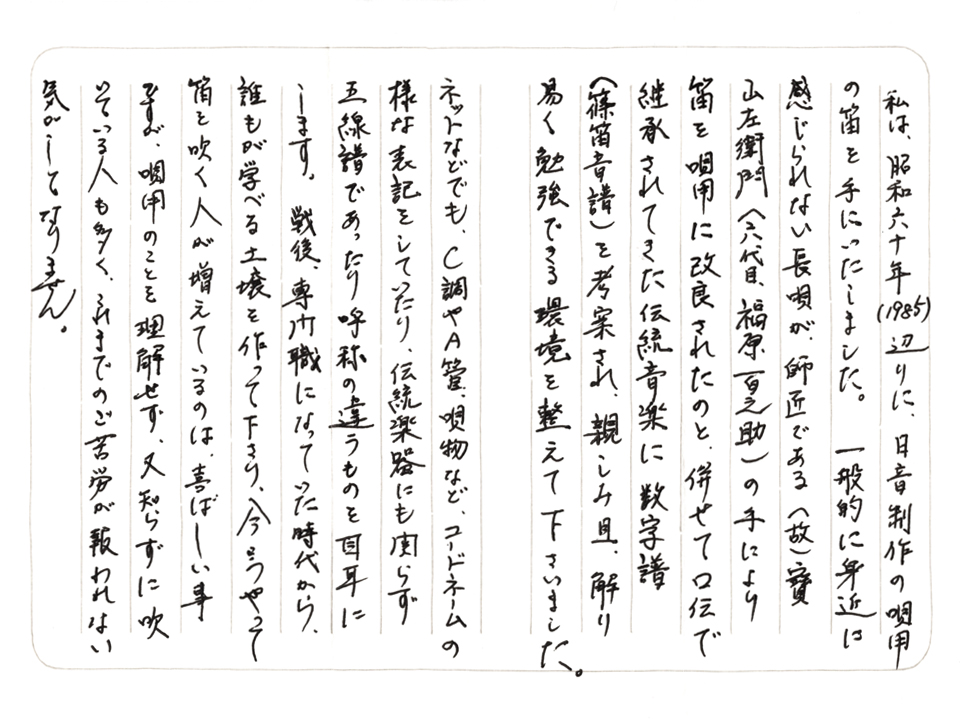 私は、昭和六十年(1985)辺りに、日音制作の唄用
の笛を手にいたしました。一般的に身近に
感じられない長唄が、師匠である(故)寳
山左衛門(六代目、福原百之助)の手により
笛を唄用に改良されたのと、併せて口伝で
継承されてきた伝統音楽に数字譜
(篠笛音譜)を考案され、親しみ且、解り
易く勉強できる環境を整えて下さいました。
ネットなどでも、C調やA管、唄物など、コードネームの
様な表記をしていたり、伝統楽器にも関らず
五線譜であったり呼称の違うものを耳に
します。戦後、専門職になっていた時代から、
誰もが学べる土壌を作って下さり、今こうやって
笛を吹く人が増えているのは、喜ばしい事
ですが、唄用のことを理解せず、又知らずに吹
いている人も多く、これまでのご苦労が報われない
気がしてなりません。